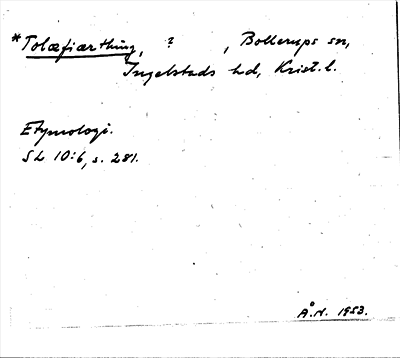 *Tolæfiærthing, ? , Bollerups sn,
Ingelstads hd, Krist. l.
Etymologi.
SL 10:6, s. 281.
Å.N. 1953.